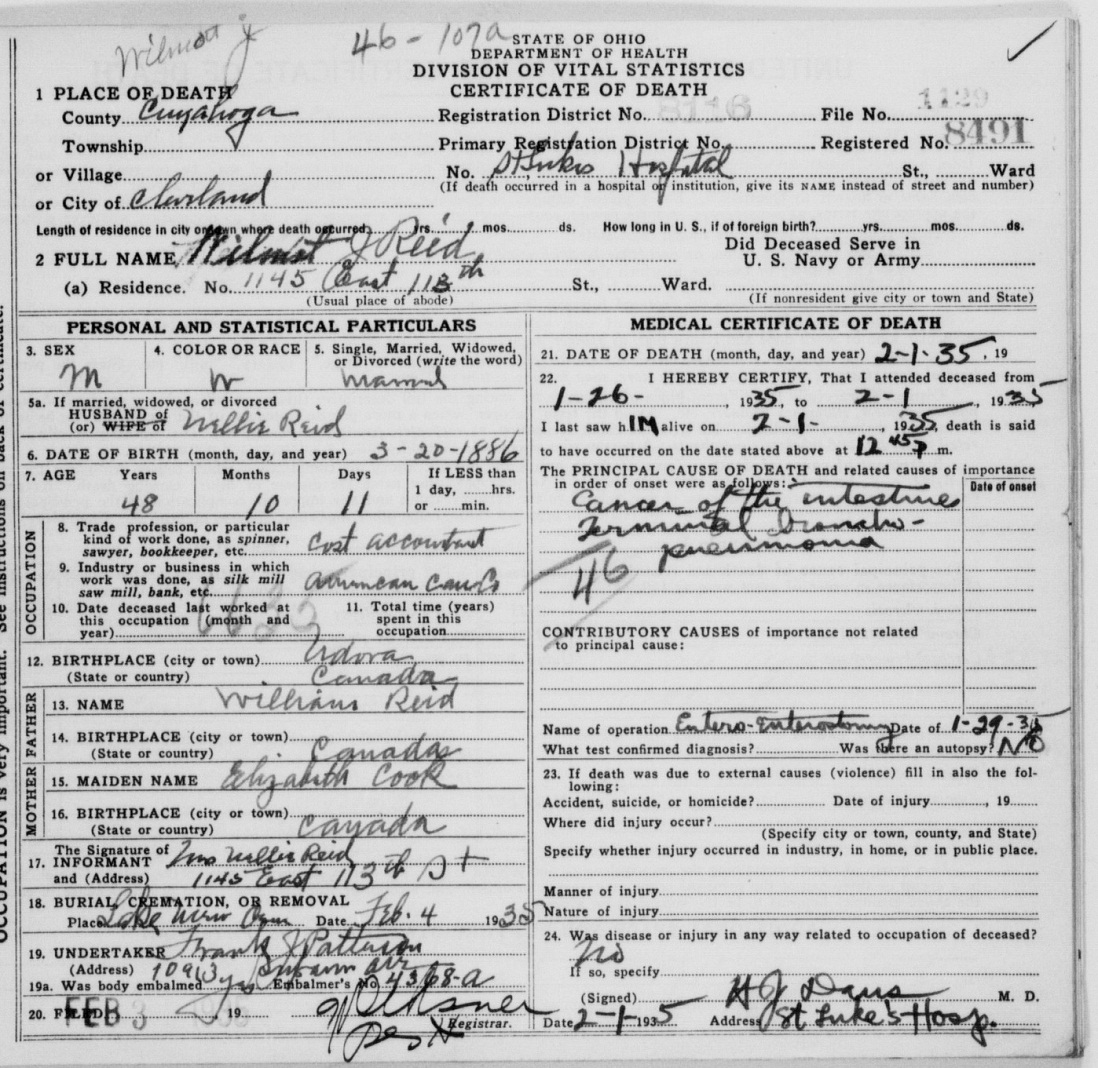 Wilmot J 46-107a
STATE OF OHIO
DEPARTMENT OF HEALTH
DIVISION OF VITAL STATISTICS
CERTIFICATE OF DEATH
1 PLACE OF DEATH
County Cuyahoga Registration District No. 8116 File No. 1129
Township Primary Registration District No. Registered No. 8491
or Village No. St Lukes Hospital St., Ward
(If death occurred in a hospital or institution, give its NAME instead of street and number)
or City of Cleveland
Length of residence in city or town where death occurred yrs. mos. ds. How long in U. S., if of foreign birth? yrs. mos. ds.
2 FULL NAME Wilmot J Reid Did Deceased Serve in U. S. Navy or Army
(a) Residence. No. 1145 East 113th St., Ward.
(Usual place of abode) (If nonresident give city or town and State)
PERSONAL AND STATISTICAL PARTICULARS
3. SEX 4. COLOR OR RACE 5. Single, Married, Widowed, or Divorced (write the word)
M W Married
5a. If married, widowed, or divorced
HUSBAND of
(or) WIFE of Nellie Reid
6. DATE OF BIRTH (month, day, and year) 3-20-1886
7. AGE Years Months Days If LESS than
1 day, hrs.
or min.
48 10 11
OCCUPATION
8. Trade profession, or particular
kind of work done, as spinner,
sawyer, bookkeeper, etc. Cost accountant
9. Industry or business in which
work was done, as silk mill
saw mill, bank, etc. American Can Co
10. Date deceased last worked at
this occupation (month and
year) 11. Total time (years)
spent in this
occupation
12. BIRTHPLACE (city or town) Udora
(State or country) Canada
FATHER
13. NAME William Reid
14. BIRTHPLACE (city or town)
(State or country) Canada
MOTHER
15. MAIDEN NAME Elizabeth Cook
16. BIRTHPLACE (city or town)
(State or country) Canada
17. The Signature of
INFORMANT Mrs Nellie Reid
and (Address) 1145 East 113th St
18. BURIAL, CREMATION, OR REMOVAL
Place Lake View Cem Date Feb. 4 1935
19. UNDERTAKER Frank J Patterson
(Address) 10913 Superior ave
19a. Was body embalmed yes Embalmer's No. 4368-a
20. FILED FEB 3 19
Registrar.
MEDICAL CERTIFICATE OF DEATH
21. DATE OF DEATH (month, day, and year) 2-1-35, 19
22. I HEREBY CERTIFY, That I attended deceased from
1-26-, 1935, to 2-1, 1935
I last saw h IM alive on 2-1-, 1935, death is said
to have occurred on the date stated above at 12 45 P m.
The PRINCIPAL CAUSE OF DEATH and related causes of importance
in order of onset were as follows: Date of onset
Cancer of the intestine
Terminal broncho-
pneumonia
46
CONTRIBUTORY CAUSES of importance not related
to principal cause:
Name of operation Entero-Enterostomy Date of 1-29-35
What test confirmed diagnosis? Was there an autopsy? No
23. If death was due to external causes (violence) fill in also the following:
Accident, suicide, or homicide? Date of injury, 19
Where did injury occur?
(Specify city or town, county, and State)
Specify whether injury occurred in industry, in home, or in public place.
Manner of injury
Nature of injury
24. Was disease or injury in any way related to occupation of deceased?
No
If so, specify
(Signed) H J Davis M. D.
Date 2-1-1935 Address St Luke's Hosp.
OCCUPATION is very important. See instructions on back of certificate.